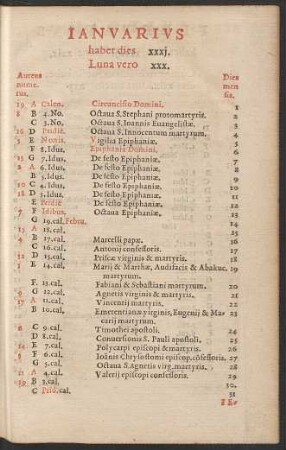 IANVARIVS
habet dies xxxj.
Luna vero xxx.
Aureus nume- rus. Dies men- sis.
19 A Calen. Circuncisio Domini. 1
8 B 4.No. Octaua S. Stephani protomartyris. 2
C 3.No. Octaua S. Ioannis Euangelistæ. 3
16 D Pridiè. Octaua S. Innocentum martyrum. 4
5 E Nonis. Vigilia Epiphaniæ. 5
F 8.Idus. Epiphania Domini. 6
13 G 7.Idus. De festo Epiphaniæ. 7
2 A 6.Idus. De festo Epiphaniæ. 8
B 5.Idus. De festo Epiphaniæ. 9
10 C 4.Idus. De festo Epiphaniæ.
D 3.Idus. De festo Epiphaniæ.
E Pridiè De festo Epiphaniæ.
7 F Idibus. Octaua Epiphaniæ.
G 19.cal.Febru.
15 A 18.cal.
4 B 17.cal. Marcelli papæ. 16
C 16.cal. Antonij confessoris. 17
12 D 15.cal. Priscæ virginis & martyris. 18
1 E 14.cal. Marij & Marthæ, Audifacis & Abakuc 19
martyrum.
F 13.cal. Fabiani & Sebastiani martyrum. 20
9 G 12.cal. Agnetis virginis & martyris. 21
A 11.cal. Vincentij martyris. 22
B 10.cal. Emerentianæ virginis, Eugenij & Ma- 23
carij martyrum.
C 9.cal. Timothei apostoli. 24
D 8.cal. Conuersionis S. Pauli apostoli. 25
E 7.cal. Polycarpi episcopi & martyris. 26
F 6.cal. Ioãnis Chrysostomi episcop. cõfessoris. 27
G 5.cal. Octaua S. Agnetis virg. martyris. 28
A 4.cal. Valerij episcopi confessoris. 29
B 3.cal. 30.
C Prid.cal. 31